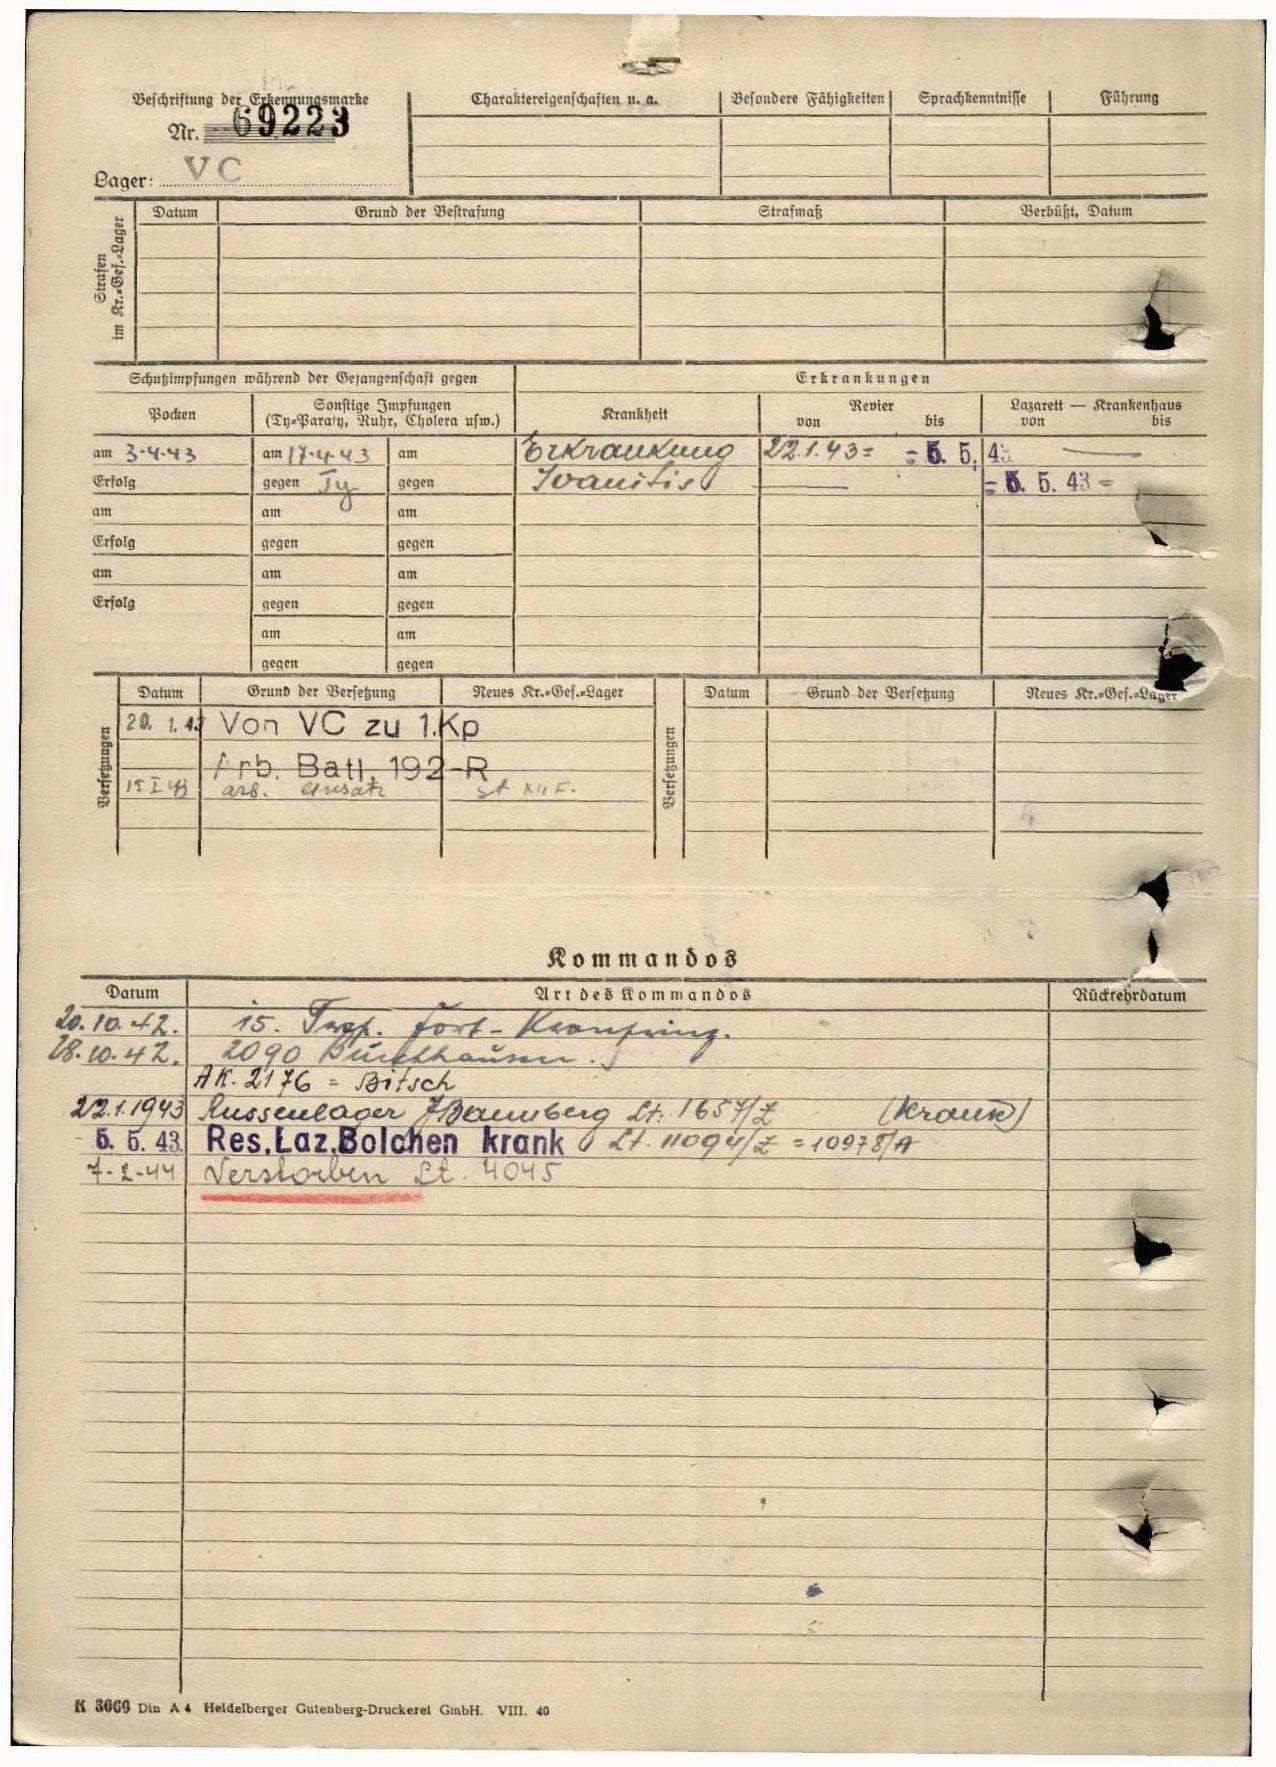 Beschriftung der Erkennungsmarke
Nr. 69223
Lager: VC
Charaktereigenschaften u. a.
Besondere Fähigkeiten
Sprachkenntnisse
Führung
Strafen im Kr.=Gef.=Lager
Datum
Grund der Bestrafung
Strafmaß
Verbüßt, Datum
Schutzimpfungen während der Gefangenschaft gegen
Erkrankungen
Pocken
Sonstige Impfungen
(Ty=Paraty, Ruhr, Cholera usw.)
Krankheit
Revier
von bis
Lazarett — Krankenhaus
von bis
am 3.4.43 am 17.4.43 am Erkrankung 22.1.43= = 5. 5. 43.
Erfolg gegen Ty gegen = 5. 5. 43 =
am am am
Erfolg gegen gegen
am am am
Erfolg gegen gegen
am am
gegen gegen
Versetzungen
Datum Grund der Versetzung Neues Kr.=Gef.=Lager
20. 1. 43 Von VC zu 1.Kp
Arb. Batl. 192-R
15 I 43 arb. Einsatz St XII F.
Versetzungen
Datum Grund der Versetzung Neues Kr.=Gef.=Lager
Kommandos
Datum Art des Kommandos Rückkehrdatum
20.10.42. 15. Fort-Kronprinz.
28.10.42. 2090
AK. 2176 = Bitsch
22.1.1943 Russenlager J/Bannberg Lt. 1657/Z (krank)
5. 5. 43. Res. Laz. Bolchen krank Lt. 11094/Z = 10978/A
7-2-44 Verstorben Lt. 4045
K 3660 Din A 4 Heidelberger Gutenberg-Druckerei GmbH. VIII. 40